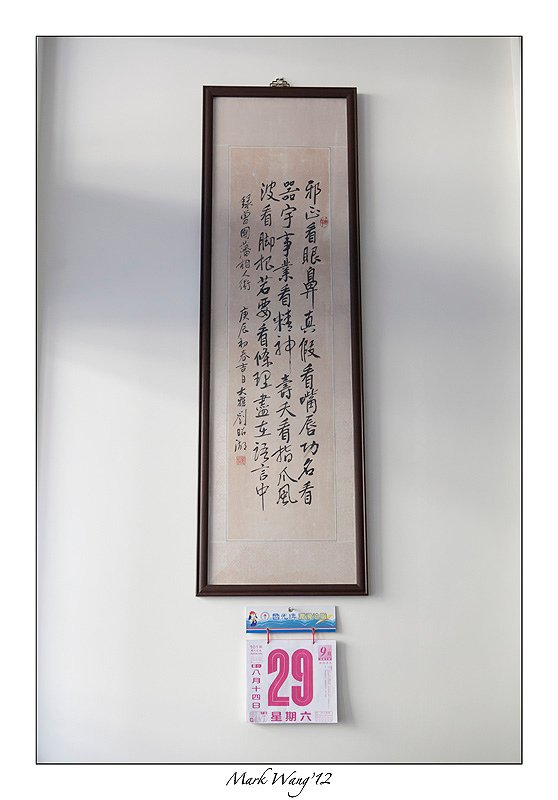 邪正看眼鼻真假看嘴唇功名看
器宇事業看精神壽夭看指爪風
波看脚根若要看條理盡在語言中
錄曾國藩相人術 庚辰初春吉日 劉昭
101
9月
八月十四日
29
星期六
Mark Wang'12